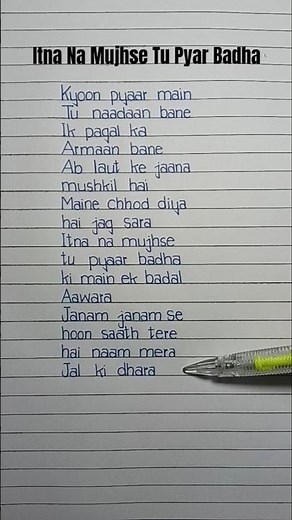 Itna Na Mujhse Tu Pyar Badha
Kyoon pyaar main
Tu naadaan bane
Ik pagal ka
Armaan bane
Ab laut ke jaana
mushkil hai
Maine chhod diya
hai jag sara
Itna na mujhse
tu pyaar badha
ki main ek badal
Aawara
Janam janam se
hoon saath tere
hai naam mera
Jal ki dhara